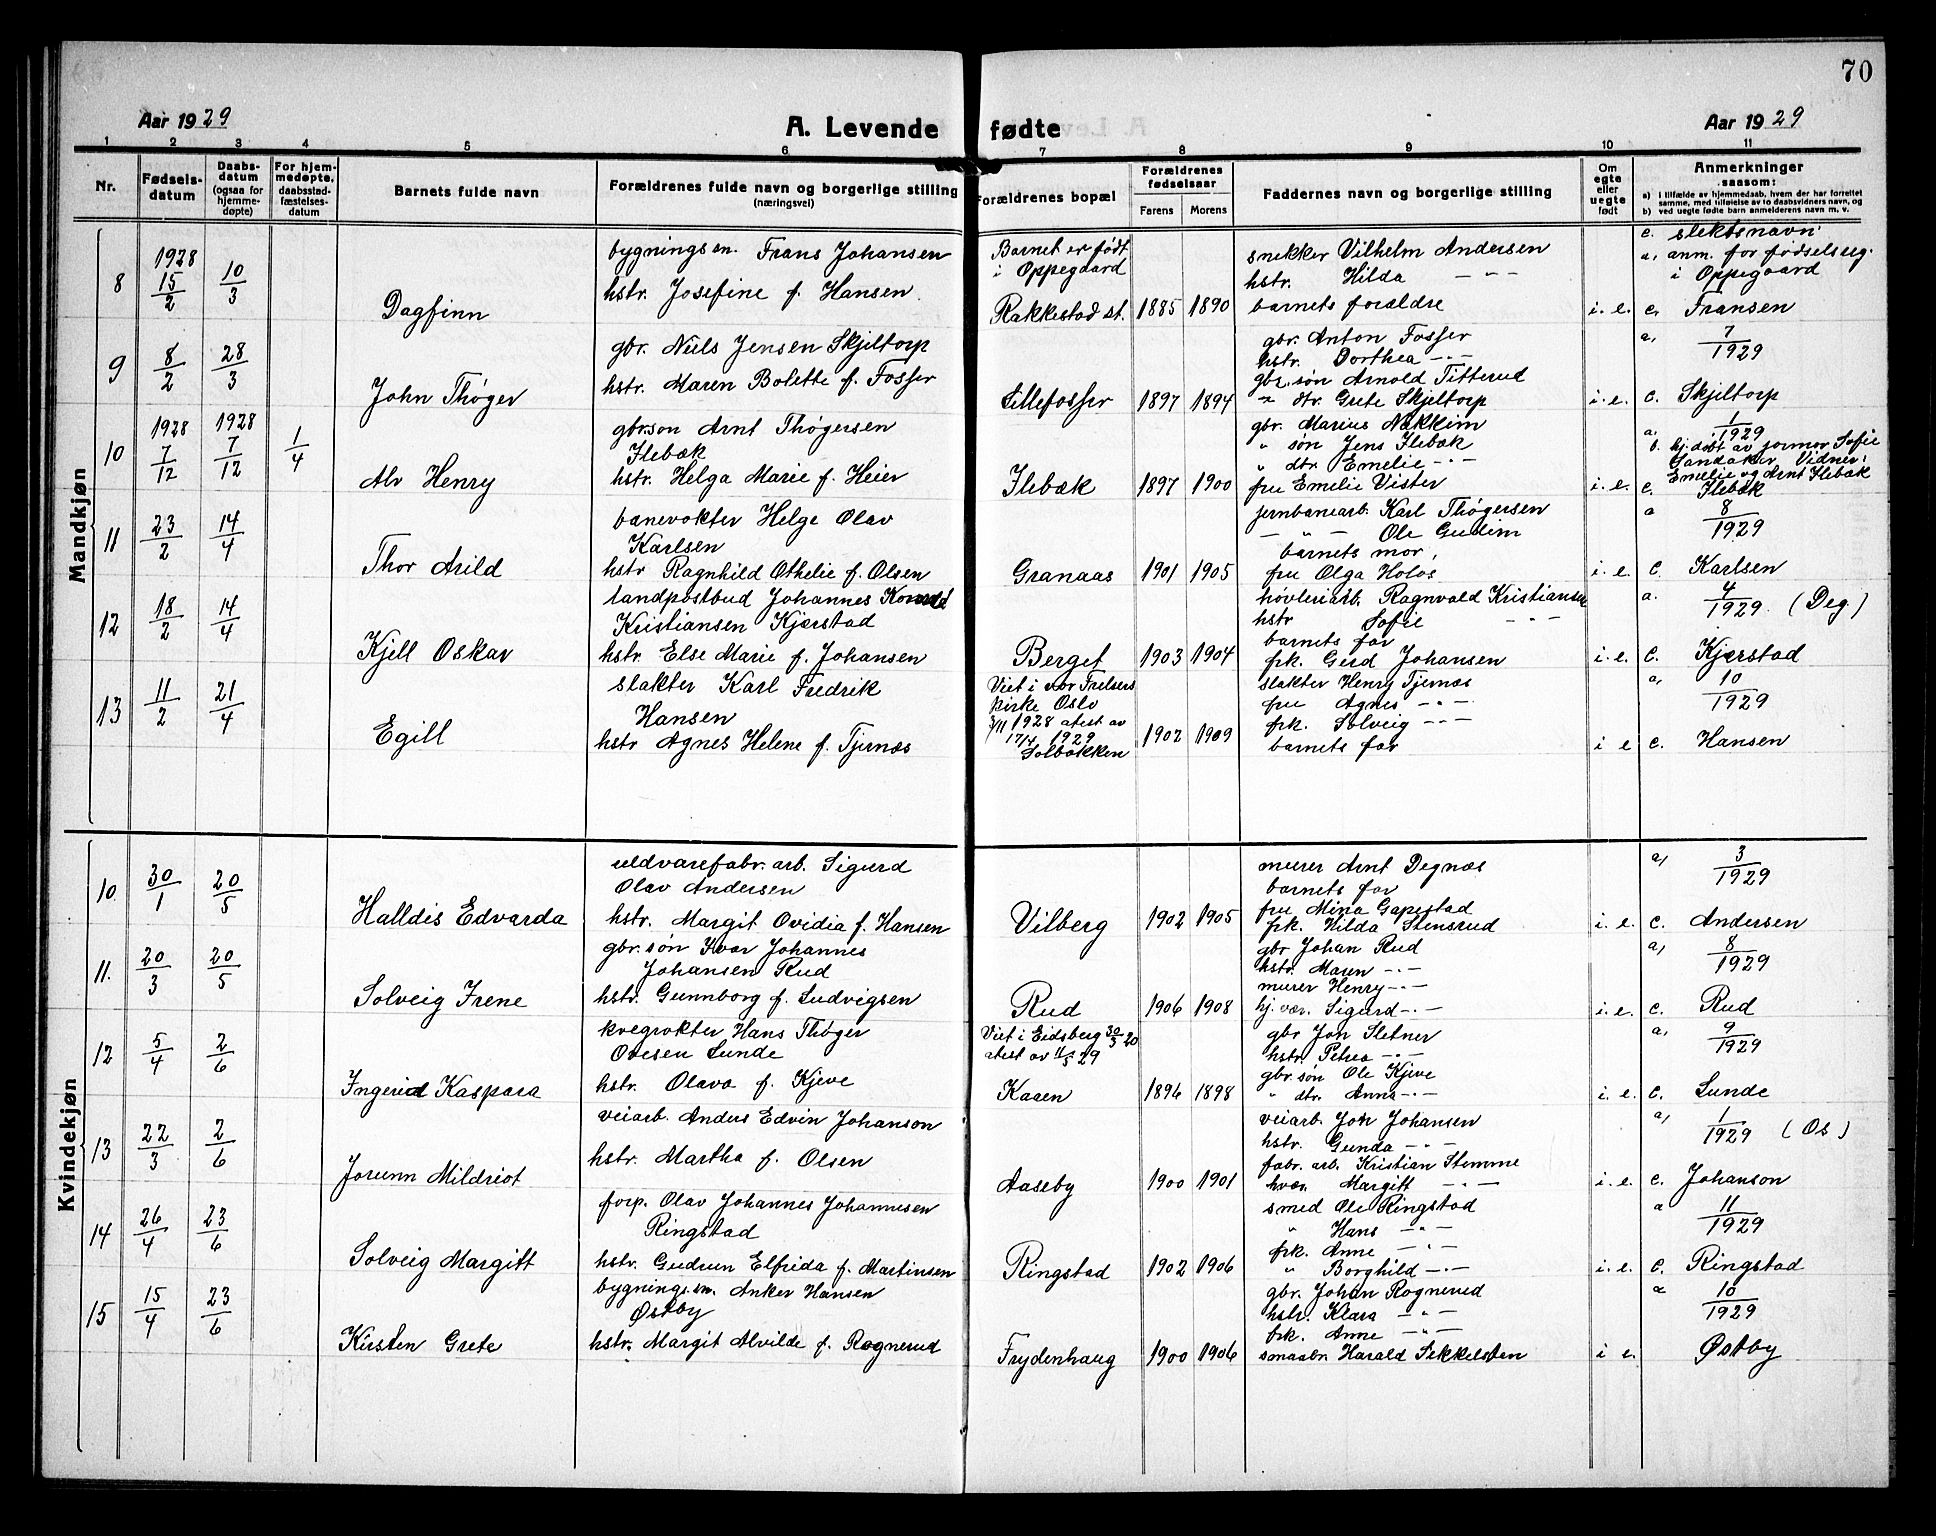 70
Aar 1929
A. Levende fødte
Aar 1929
1 2 3 4 5 6 7 8 9 10 11
Nr.
Fødsels-
datum
Daabs-
datum
(ogsaa for
hjemme-
døpte)
For hjem-
medøpte,
daabsstad-
fæstelses-
datum
Barnets fulde navn
Forældrenes fulde navn og borgerlige stilling
(næringsvei)
Forældrenes bopæl
Forældrenes
fødselsaar
Farens Morens
Faddernes navn og borgerlige stilling
Om
egte
eller
uegte
født
Anmerkninger
saasom:
a) i tilfælde av hjemmedaab, hvem der har forrettet
samme, med tilføielse av to daabsvidners navn, og
b) ved uegte fødte barn anmelderens navn m. v.
Mandkjøn
8
1928
15/2
10/3
Dagfinn
bygningsm. Frans Johansen
hstr. Josefine f. Hansen
Barnet er født
i Oppegaard
Rakkestad st.
1885 1890
snekker Vilhelm Andersen
hstr. Hilda — " —
barnets forældre
i. e.
c. slektsnavn:
a, anm. for fødselsreg.
i Oppegaard
c. Fransen
9
8/2
28/3
John Thøger
gbr. Niels Jensen Skjeltorp
hstr. Maren Bolette f. Fosser
Lillefosser
1897 1894
gbr. Anton Fosser
hstr. Dorthea — " —
gbr. søn Arnold Titterud
" dtr. Grete Skjeltorp
i. e.
a, 7/1929
c. Skjeltorp
10
1928
7/12
1928
7/12
1/4
Alv Henry
gbrsøn Arnt Thøgersen
Ilebæk
hstr. Helga Marie f. Heier
Ilebæk
1897 1900
gbr. Marius Nækkim
" søn Jens Ilebæk
" dtr. Emelie — " —
fru Emelie Vister
i. e.
a, 1/1929
b. hj.døbt av jormor Sofie
Sandaker Vidner:
Emelie og Arnt Ilebæk
c. Ilebæk
11
23/2
14/4
Thor Arild
banevokter Helge Olav
Karlsen
hstr Ragnhild Othelie f. Olsen
Granaas
1901 1905
jernbanearb. Karl Thøgersen
— " — Ole Gudim
barnets mor,
fru Olga Holøs
i. e.
a 8/1929
c. Karlsen
12
18/2
14/4
Kjell Oskar
landpostbud Johannes Konrad
Kristiansen Kjærstad
hstr. Else Marie f. Johansen
Berget
1903 1904
høvleriarb. Ragnvald Kristiansen
hstr Sofie — " —
barnets far
frk. Gerd Johansen
i. e.
a. 4/1929. (Deg)
c. Kjærstad
13
11/2
21/4
Egill
slakter Karl Fredrik
Hansen
hstr. Agnes Helene f. Tjernæs
Viet i vor Frelsers
kirke Oslo
3/11 1928 atest av
17/4 1929
Solbakken
1902 1909
slakter Henry Tjernæs
fru Agnes — " —
frk. Solveig — " —
barnets far
i e
a, 10/1929
c. Hansen
Kvindekjøn
10
30/1
20/5
Halldis Edvarda
uldvarefabr. arb. Sigurd
Olav Andersen
hstr. Margit Ovidia f. Hansen
Vilberg
1902 1905
murer Arnt Degnæs
barnets far
fru Mina Gapestad
frk. Hilda Stensrud
i. e.
a, 3/1929
c. Andersen
11.
20/3
20/5
Solveig Irene
gbr. søn Ivar Johannes
Johansen Rud
hstr. Gunnborg f. Ludvigsen
Rud
1906 1908
gbr Johan Rud
hstr. Maren — " —
murer Henry — " —
hj. vær. Sigurd — " —
i. e.
a, 8/1929
c. Rud
12
5/4
2/6
Ingerid Kaspara
kvegrøkter Hans Thøger
Ovesen Lunde
hstr. Olava f. Kjeve
Viet i Eidsberg 30/5 20
atest av 11/5 29
Kaaen
1894 1898
gbr Jon Sletner
hstr. Petrea — " —
gbr. søn Ole Kjeve
" dtr. Anna — " —
i. e.
a, 9/1929
c. Lunde
13
22/3
2/6
Jorunn Mildriot
veiarb. Anders Edvin Johanson
hstr. Martha f. Olsen
Aaseby
1900 1901
veiarb. Jon Johansen
hstr. Gunda — " —
fabr. arb. Kristian Stemme
hvær. Margitt — " —
i. e.
a, 1/1929 (Os)
c. Johanson
14
26/4
23/6
Solveig Margitt
forp. Olav Johannes Johannesen
Ringstad
hstr. Gudrun Elfrida f. Martinsen
Ringstad
1902 1906
smed Ole Ringstad
" Hans — " —
frk. Anne — " —
" Borghild — " —
i. e.
a 11/1929
c. Ringstad
15
15/4
23/6
Kirsten Grete
bygningsm. Anker Hansen
Østby
hstr. Margit Alvilde f. Rognerud
Frydenhaug
1900 1906
gbr. Johan Rognerud
hstr. Klara — " —
frk. Anne — " —
smaabr. Harald Sikkelsten
i e.
a 10/1929
Østby